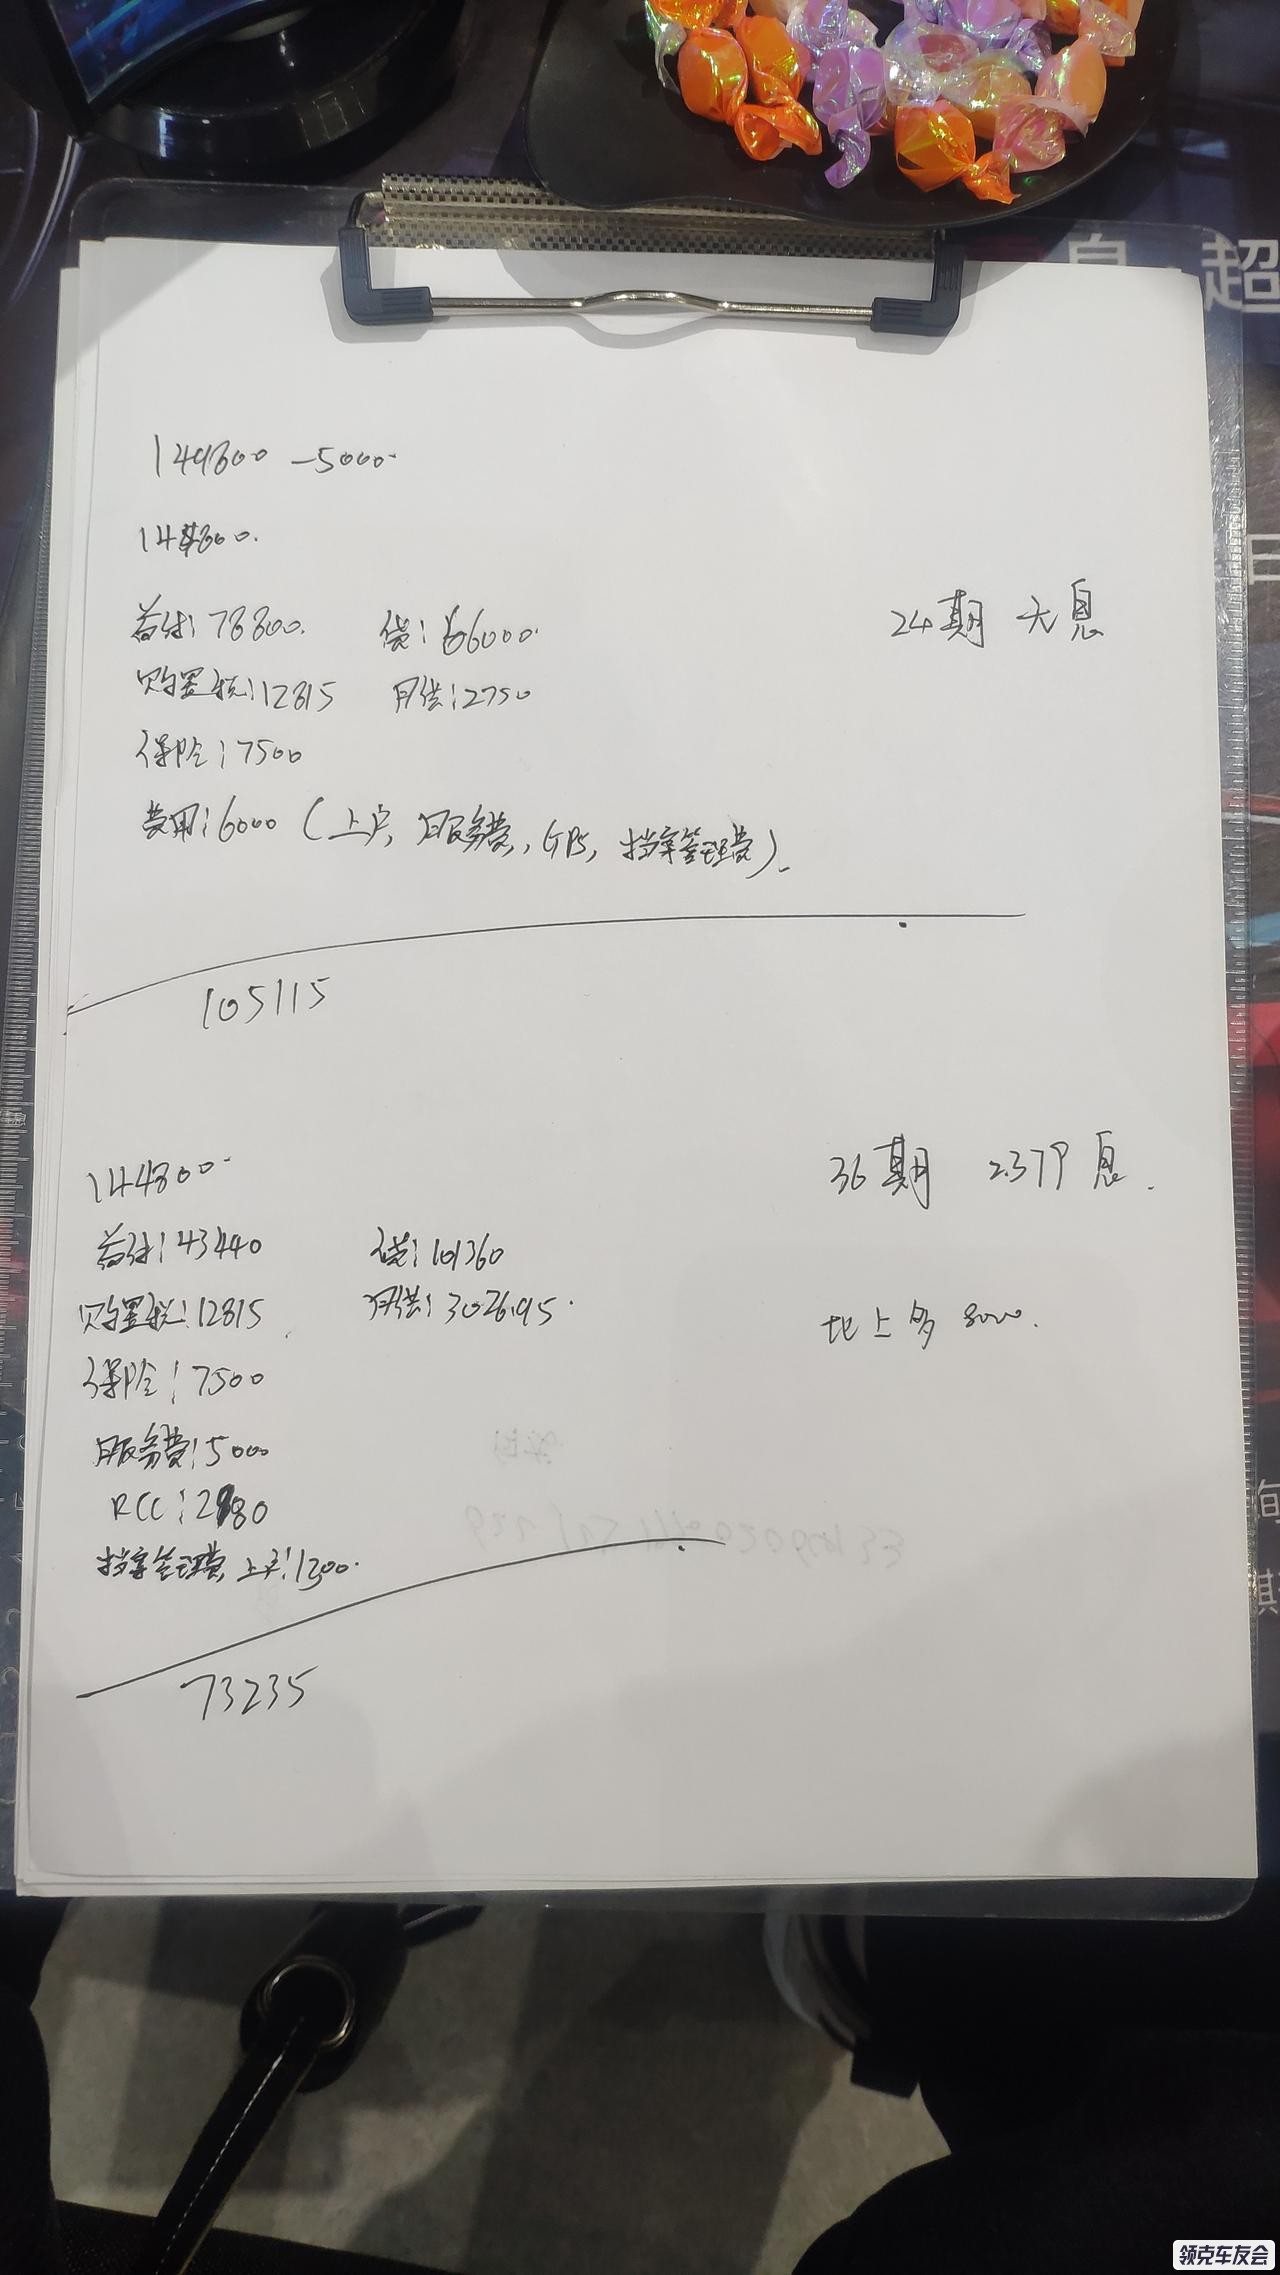 149800 -5000
144800.
首付:78800. 贷:66000.
24期 无息
购置税:12815 月供:2750
保险:7500
费用:6000 (上户,服务费,GPS,档案管理费).
105115
144800.
36期 2.379 息.
首付:43440 贷:101360
购置税:12815 月供:3026.95.
比上多 8000.
保险:7500
服务费:5000
RCC:2980
档案管理费,上户:1300.
73235
超
日
询
领克车友会